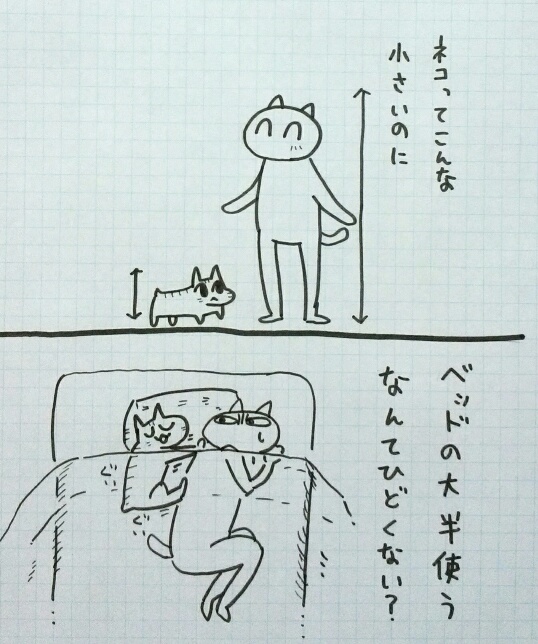 ネコってこんな
小さいのに
ベッドの大半使う
なんてひどくない？
ぐぐ
ぐぐ